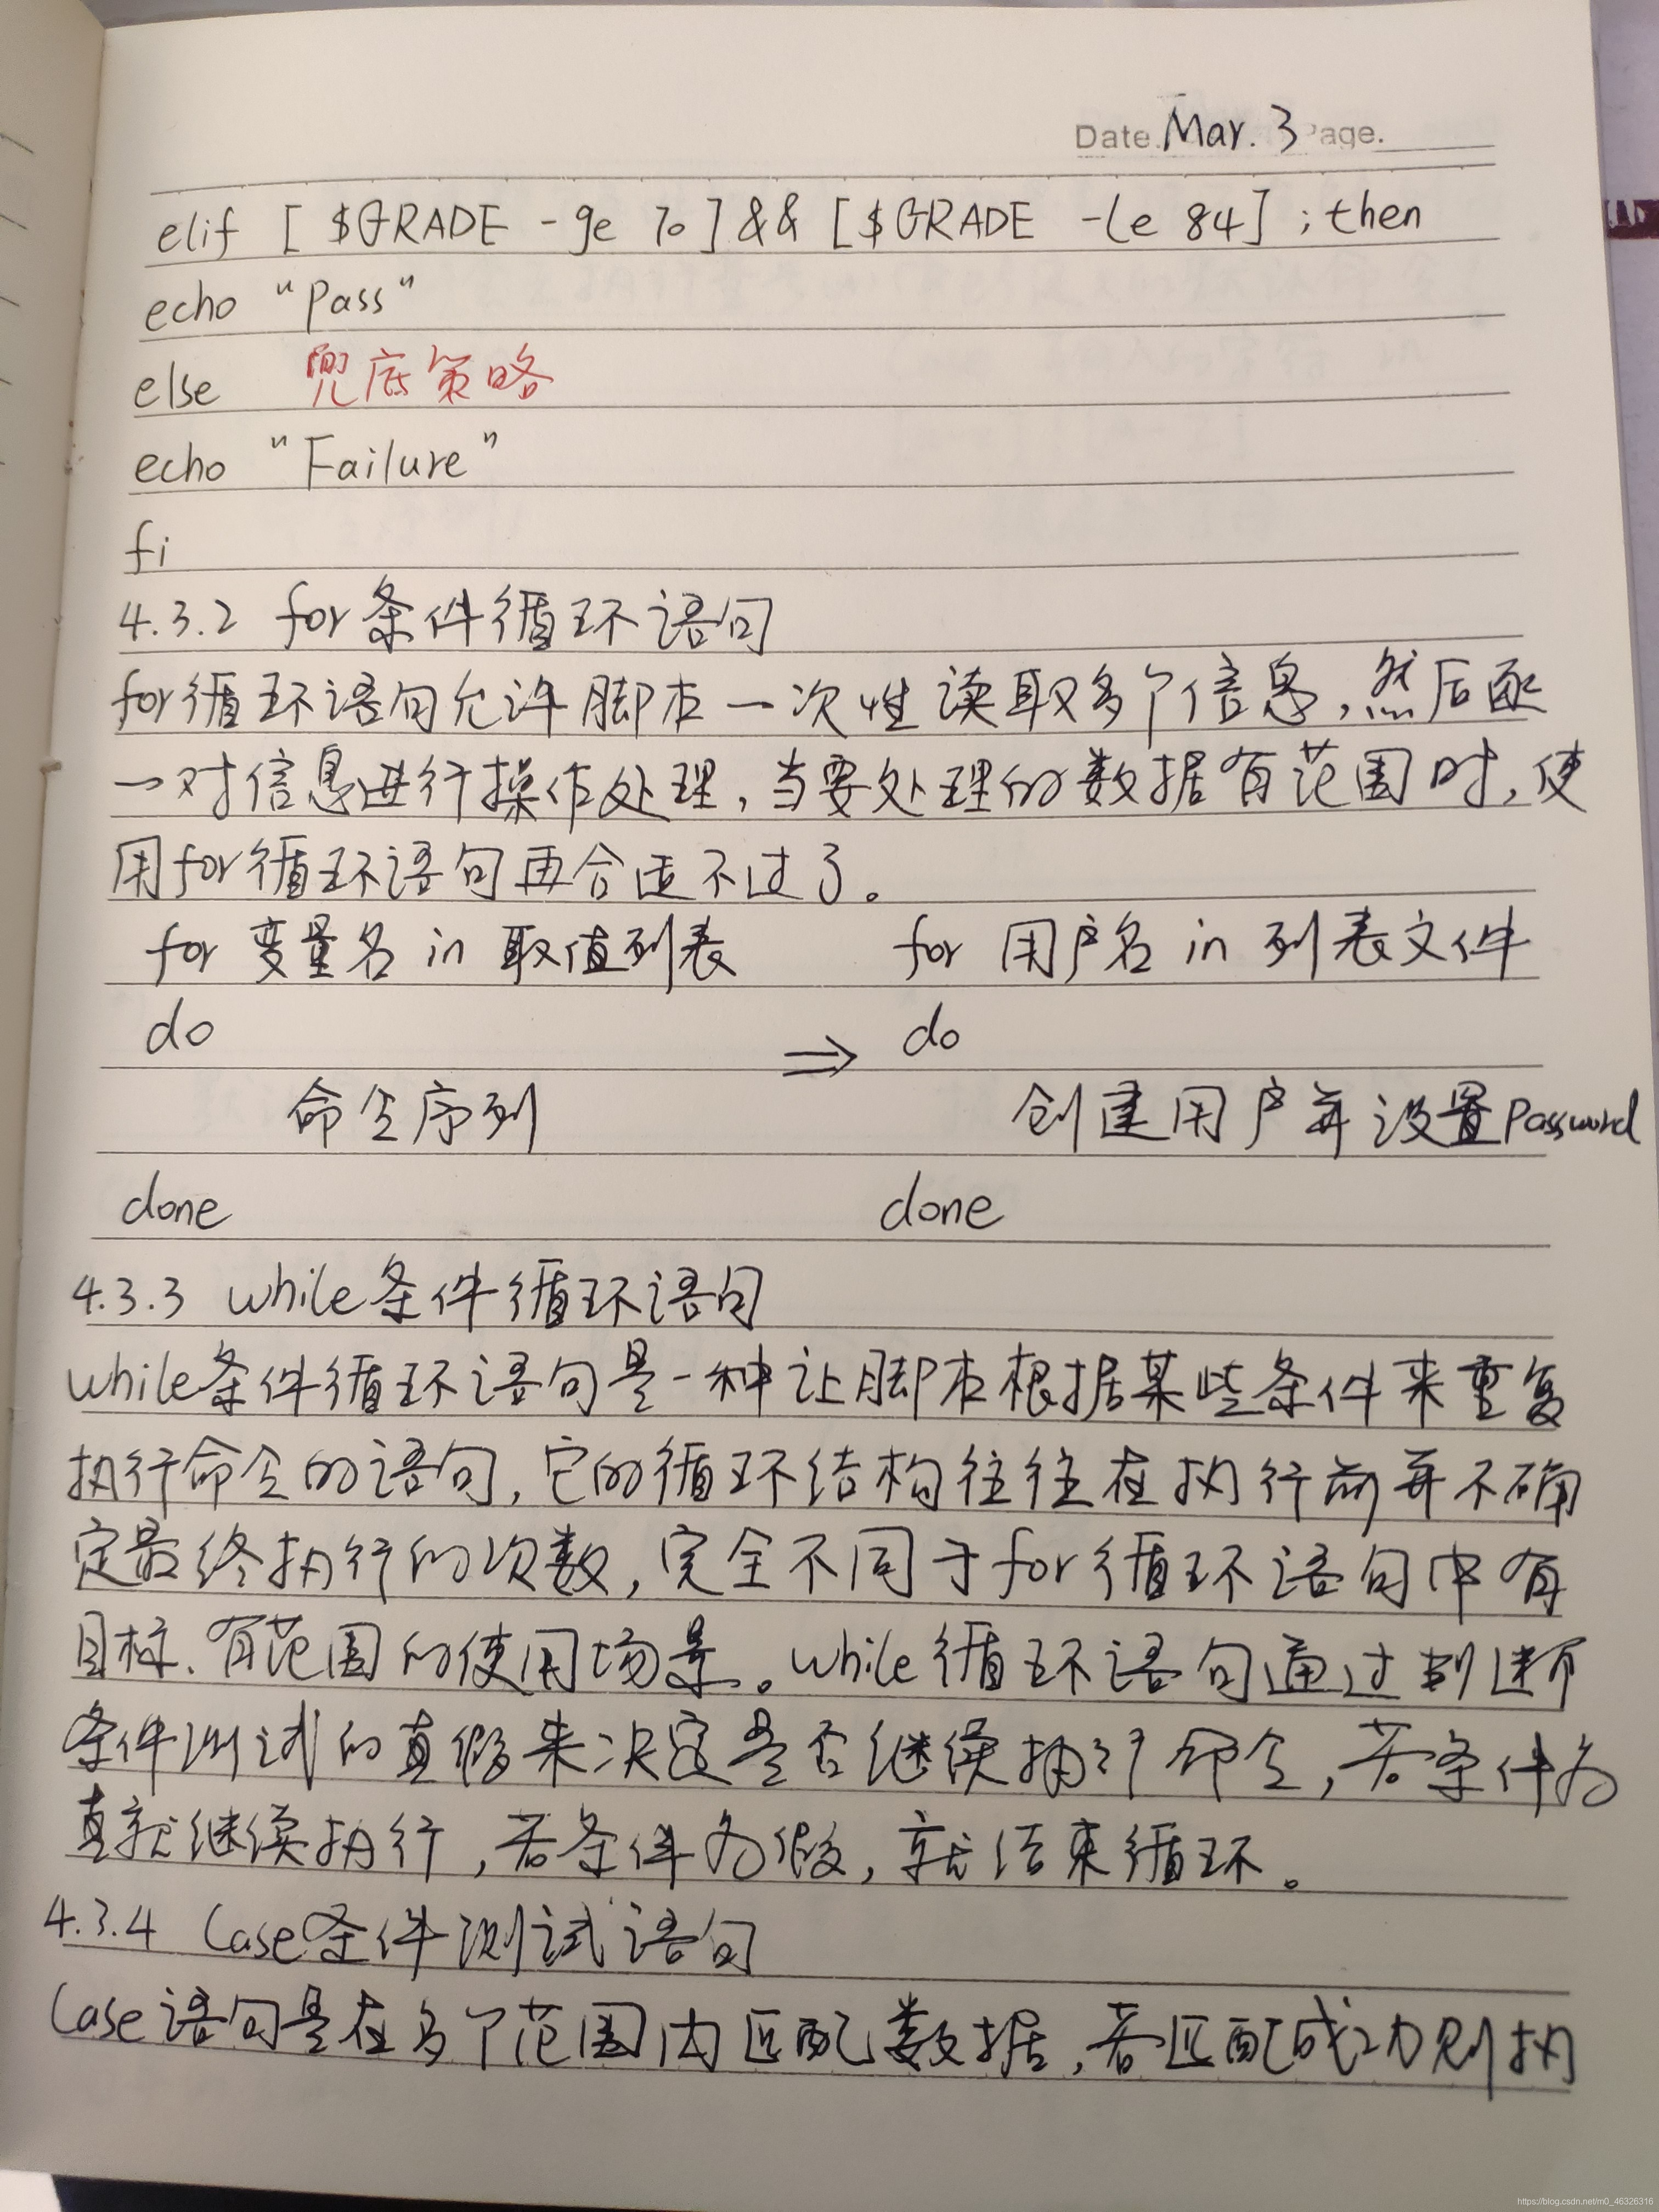 Date. Mar. 3 Page.
elif [ $GRADE -ge 70 ] && [ $GRADE -le 84 ] ; then
echo "Pass"
else 兜底策略
echo "Failure"
fi
4.3.2 for条件循环语句
for循环语句允许脚本一次性读取多个信息,然后逐
一对信息进行操作处理,当要处理的数据有范围时,使
用for循环语句再合适不过了。
for 变量名 in 取值列表 for 用户名 in 列表文件
do ⇒ do
命令序列 创建用户并设置Password
done done
4.3.3 while条件循环语句
while条件循环语句是一种让脚本根据某些条件来重复
执行命令的语句,它的循环结构往往在执行前并不确
定最终执行的次数,完全不同于for循环语句中有
目标、有范围的使用场景。while循环语句通过判断
条件测试的真假来决定是否继续执行命令,若条件为
真就继续执行,若条件为假,就结束循环。
4.3.4 Case条件测试语句
Case语句是在多个范围内匹配数据,若匹配成功则执
https://blog.csdn.net/m0_46326316